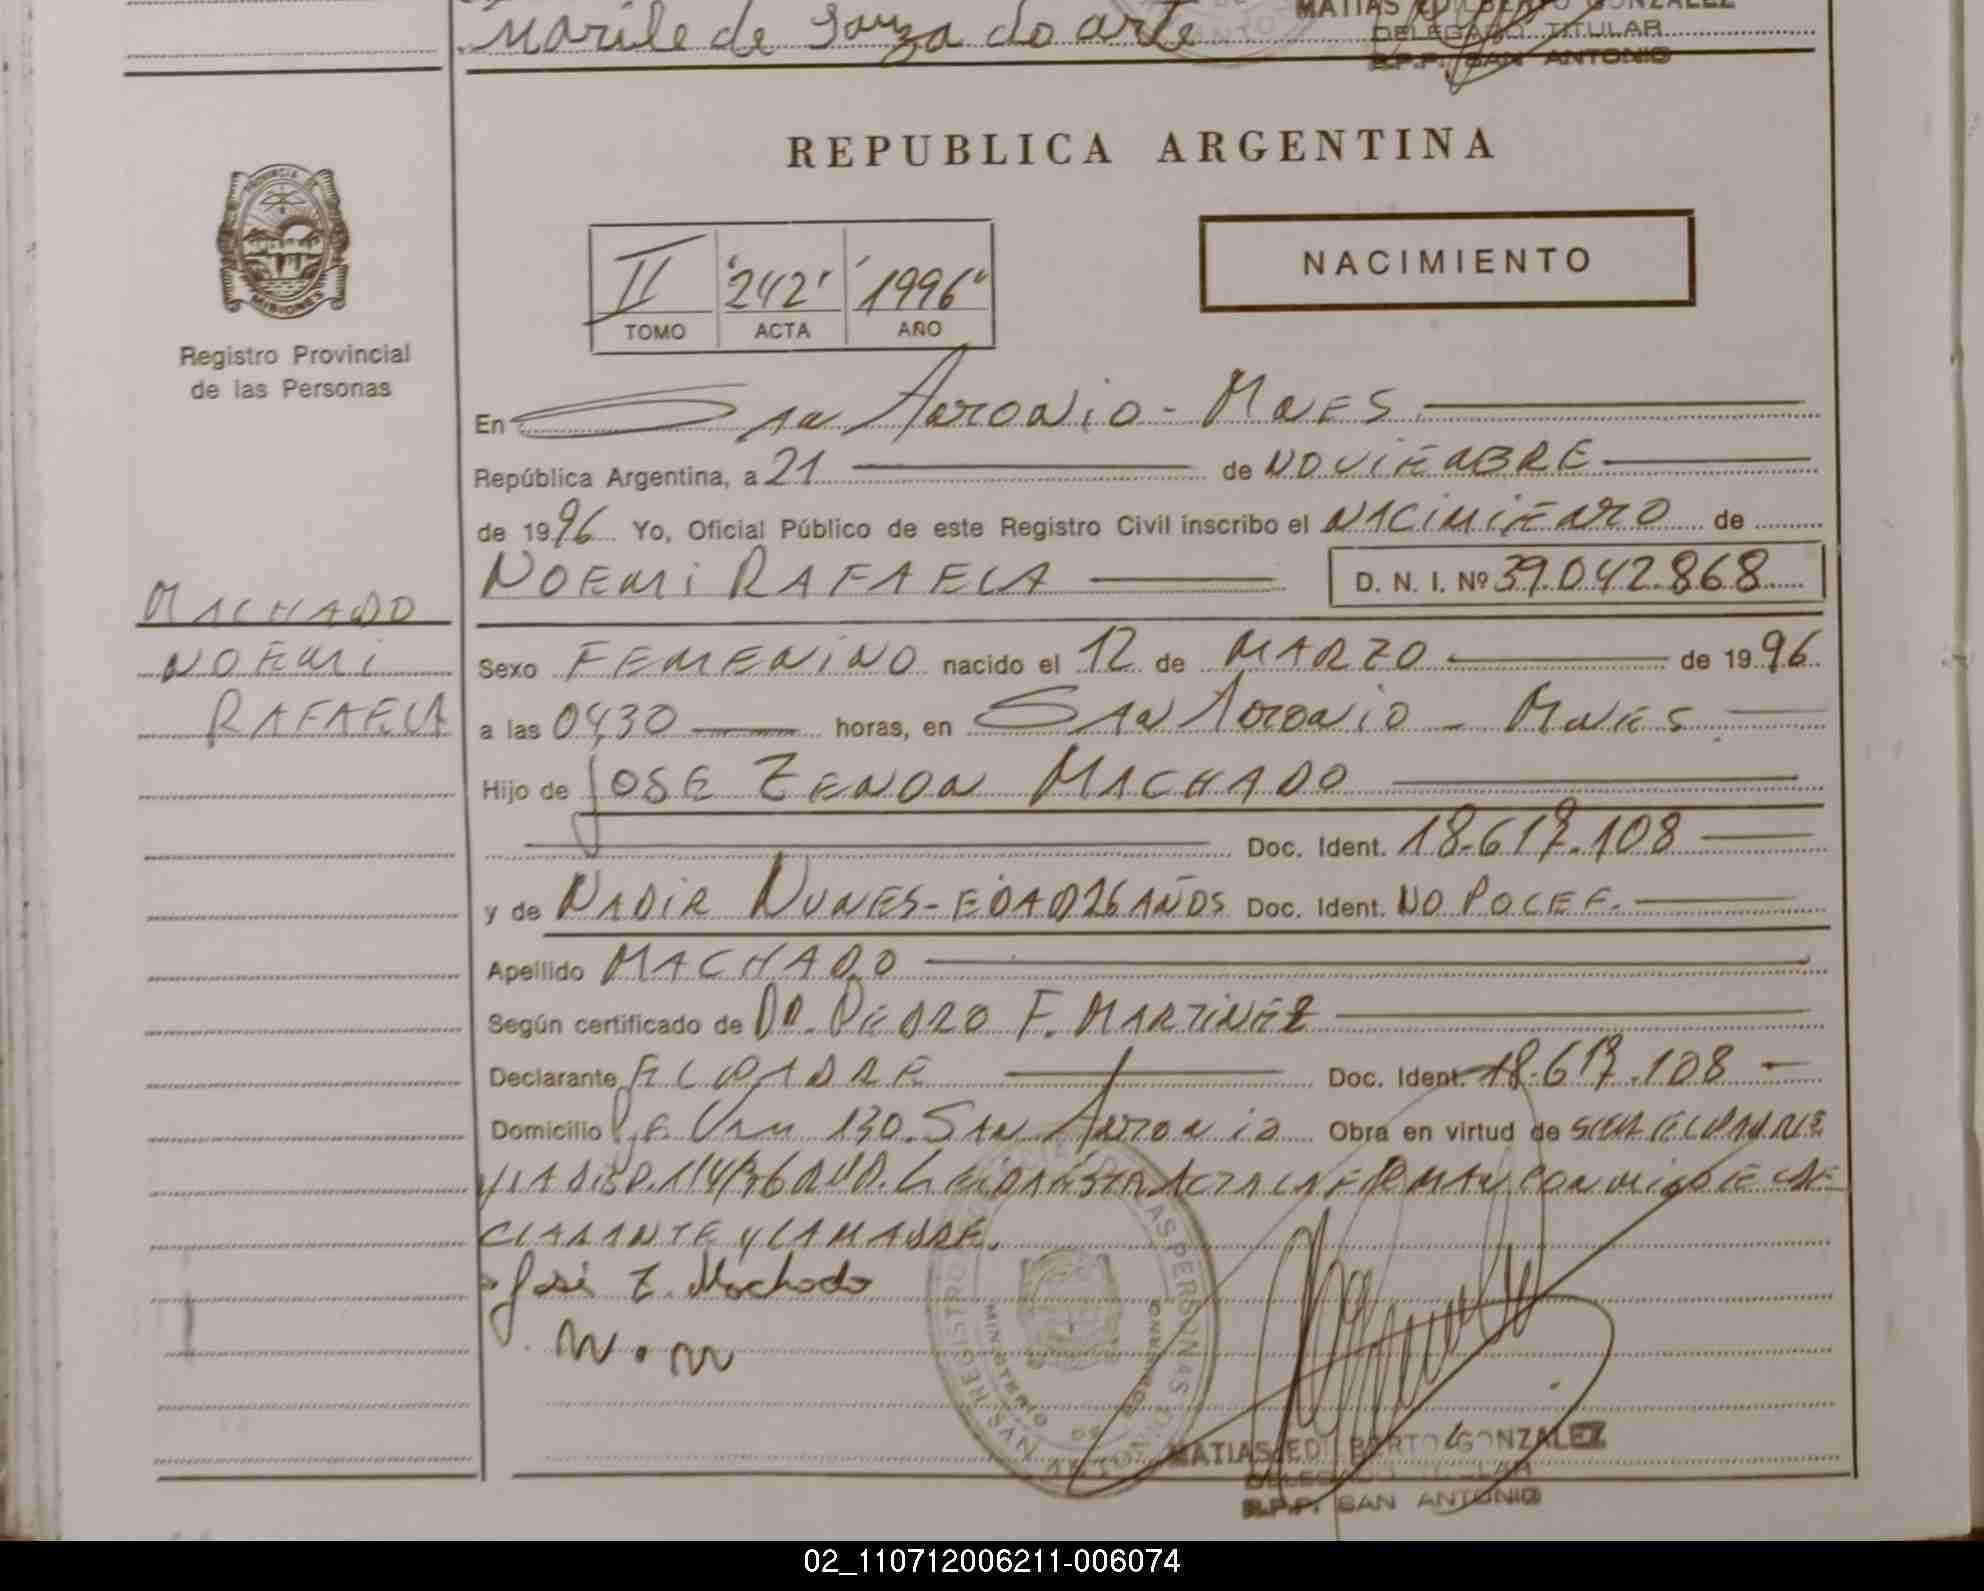 Marile de Souza do arte
MATIAS EDILBERTO GONZALEZ
DELEGADO TITULAR
R.P.P. SAN ANTONIO
REPUBLICA ARGENTINA
PROVINCIA DE
MISIONES
Registro Provincial
de las Personas
II "242" "1996"
TOMO ACTA AÑO
NACIMIENTO
En San Antonio - Mnes
República Argentina, a 21 de NOVIEMBRE
de 1996 Yo, Oficial Público de este Registro Civil inscribo el NACIMIENTO de
NOEMI RAFAELA D. N. I. Nº 39.042.868
MACHADO
NOEMI
RAFAELA
Sexo FEMENINO nacido el 12 de MARZO de 1996
a las 04,30 horas, en San Antonio - Mnes
Hijo de JOSE ZENON MACHADO
Doc. Ident. 18.617.108
y de NADIR NUNES - EDAD 26 AÑOS Doc. Ident. NO POCEE.
Apellido MACHADO
Según certificado de DR. PEDRO F. MARTINEZ
Declarante EL PADRE Doc. Ident. 18.617.108
Domicilio 130. SAN Antonio Obra en virtud de SER EL PADRE
Y LA DISP. 114/96 LEIDA ESTA ACTA LA FIRMAN CONMIGO EL DE
CLARANTE Y LA MADRE.
José Z. Machado
N. N
REGISTRO DE LAS PERSONAS
MINISTERIO DE GOBIERNO
MATIAS EDILBERTO GONZALEZ
DELEGADO TITULAR
R.P.P. SAN ANTONIO
02_110712006211-006074